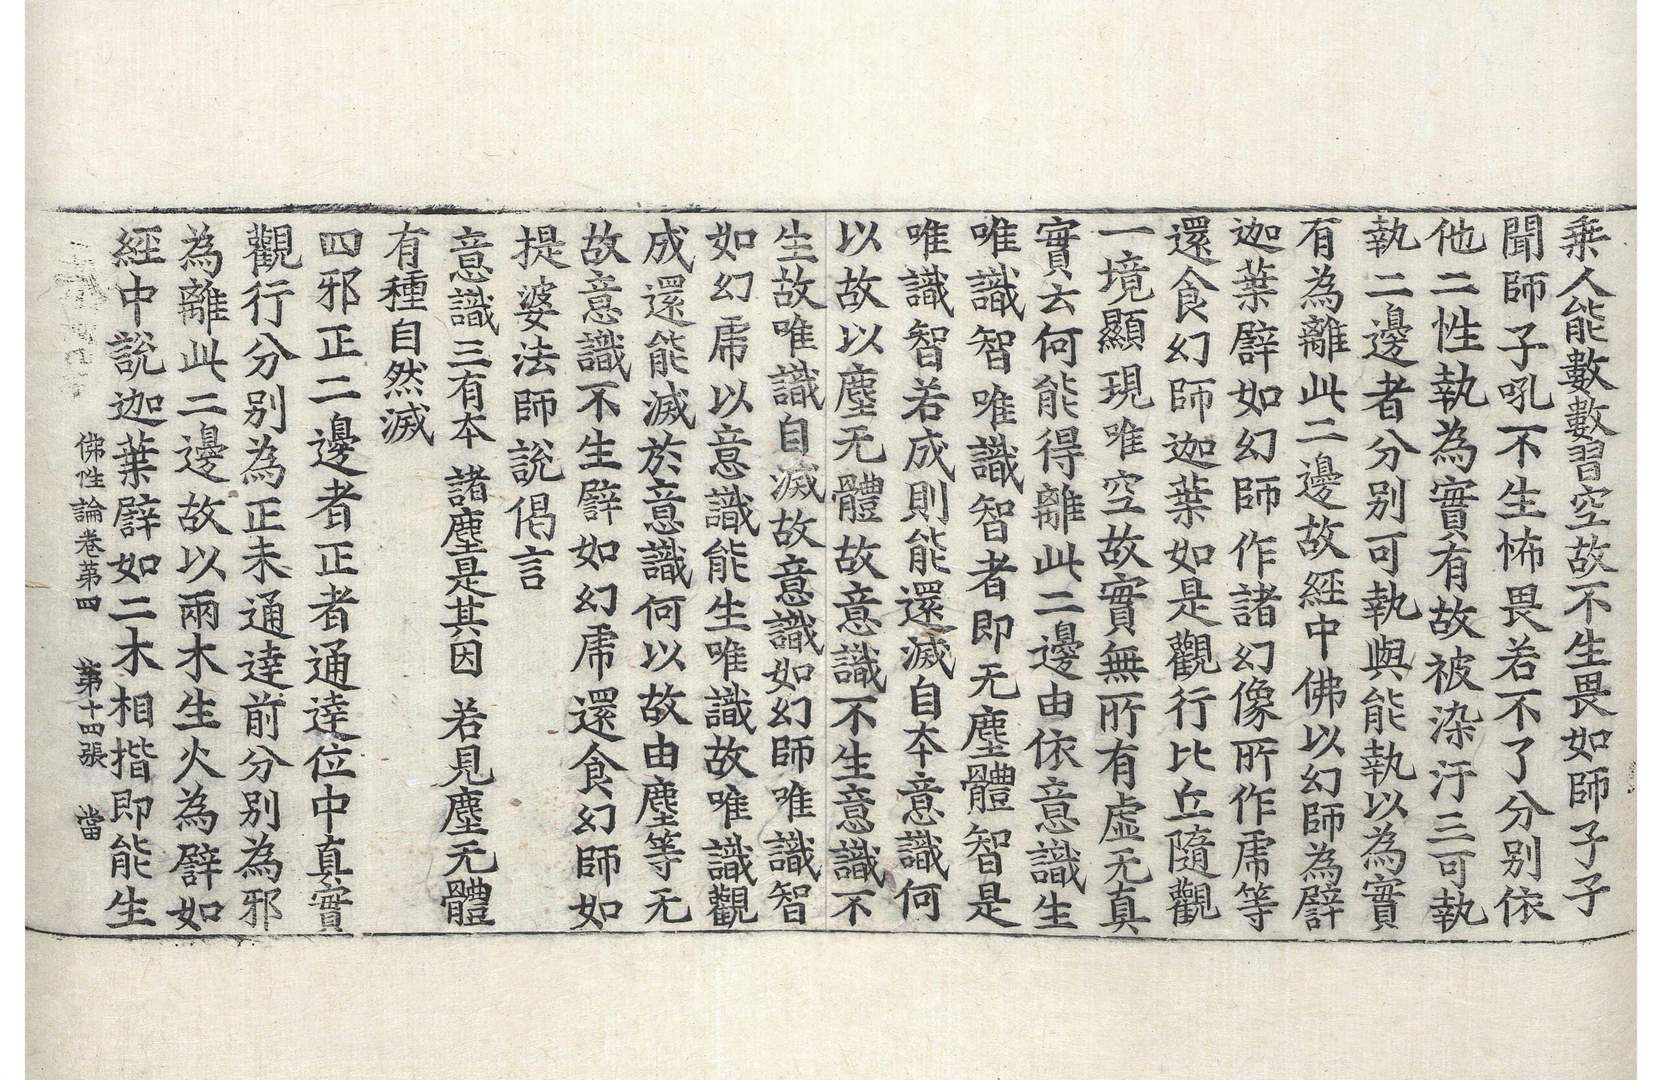 乗人能數數習空故不生畏如師子子
聞師子吼不生怖畏若不了分別依
他二性執為實有故被染汙三可執
執二邊者分別可執與能執以為實
有為離此二邊故經中佛以幻師為譬
迦葉譬如幻師作諸幻像所作虎等
還食幻師迦葉如是觀行比丘隨觀
一境顯現唯空故實無所有虛无真
實云何能得離此二邊由依意識生
唯識智唯識智者即无塵體智是
唯識智若成則能還滅自本意識何
以故以塵无體故意識不生意識不
生故唯識自滅故意識如幻師唯識智
如幻虎以意識能生唯識故唯識觀
成還能滅於意識何以故由塵等无
故意識不生譬如幻虎還食幻師如
提婆法師說偈言
意識三有本 諸塵是其因 若見塵无體
有種自然滅
四邪正二邊者正者通達位中真實
觀行分別為正未通達前分別為邪
為離此二邊故以兩木生火為譬如
經中說迦葉譬如二木相揩即能生
佛性論卷苐四 苐十四張 當